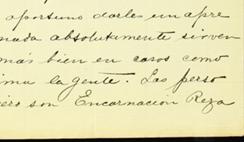 oportuno darles un apre
nada absolutamente sirven
más bien en casos como
ima la gente. Las perso
ero son Encarnacion Reza